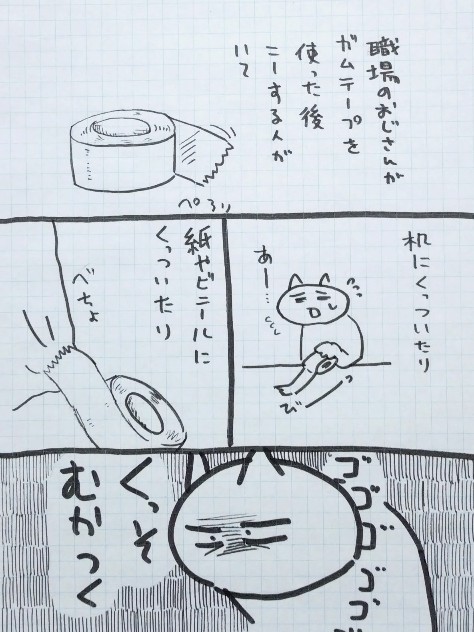 職場のおじさんが
ガムテープを
使った後
こーする人が
いて
ぺろり
机にくっついたり
あー…
びーっ
紙やビニールに
くっついたり
べちょ
ゴゴゴゴゴ
くっそ
むかつく